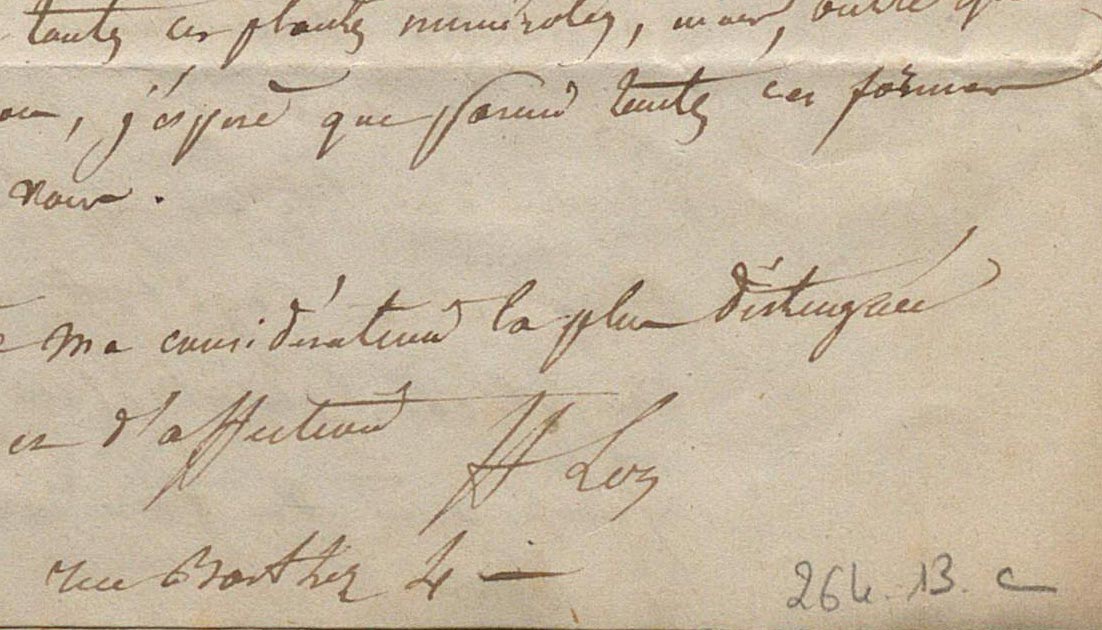 toutes ces plantes numérotées, mais, outre
, j'espère que parmi toutes ces formes
ma considération la plus distinguée
et d'affection H Loz
rue Barthez 4 —
264. 13. c